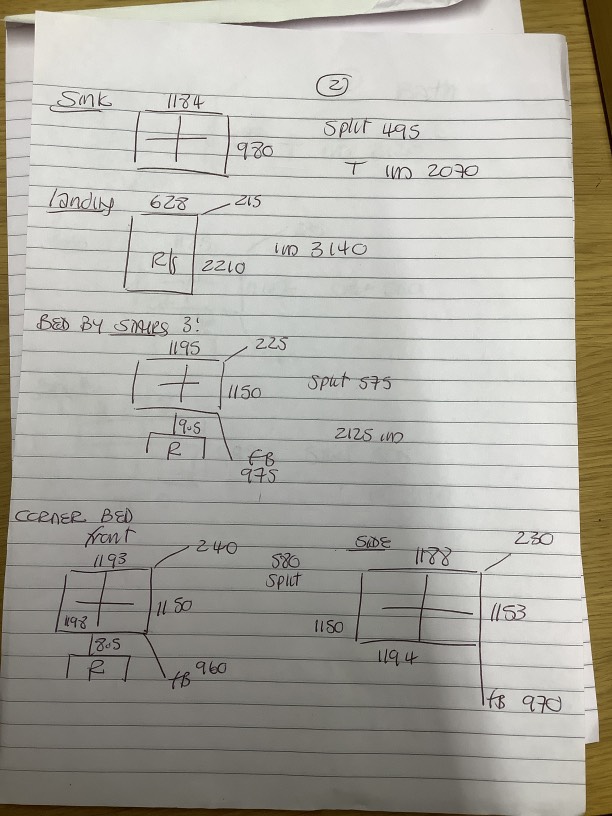 2
Sink 1184
980
Split 495
T IN 2070
landing 628 215
R/S 2210
IN 3140
BED BY STAIRS 3!
1195 225
1150
Split 575
9.5
R
fB
975
2125 IN
CORNER BED
front
1193 240
1198 1150
580
Split
8.5
R
fB 960
SIDE
1188 230
1150 1153
1194
fB 970